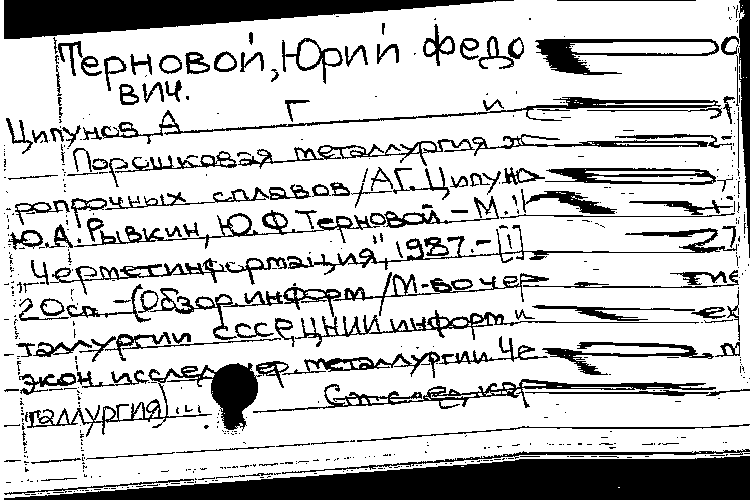 Терновой, Юрий Федо
вич.
Ципунов, А Г и
Порошковая металлургия ж
ропрочных сплавов /А.Г. Ципуно
Ю.А. Рывкин, Ю.Ф. Терновой. – М.:
„Черметинформация", 1987. – [1] 27
20см. – (Обзор. информ /М-во чер ме
таллургии СССР, ЦНИИ информ. и ех
экон. исслед. чер. металлургии. Че
таллургия) ...
См. след. кар